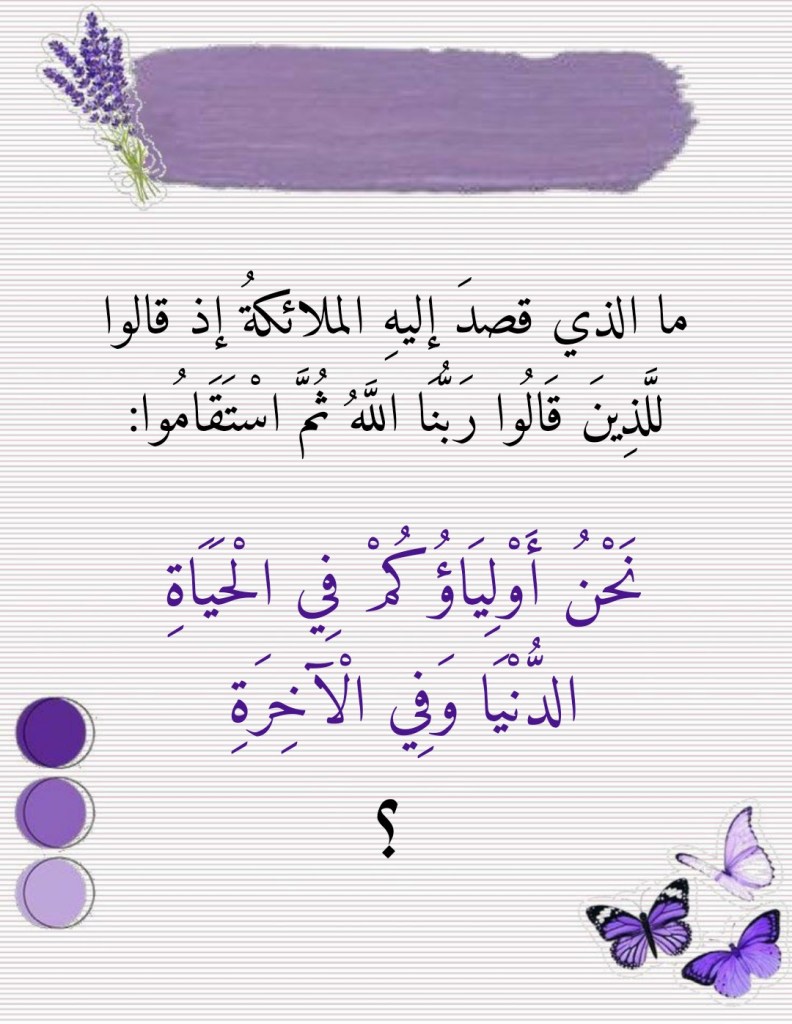 ما الذي قصدَ إليهِ الملائكةُ إذ قالوا
للَّذِينَ قَالُوا رَبُّنَا اللَّهُ ثُمَّ اسْتَقَامُوا:
نَحْنُ أَوْلِيَاؤُكُمْ فِي الْحَيَاةِ
الدُّنْيَا وَفِي الْآخِرَةِ
؟